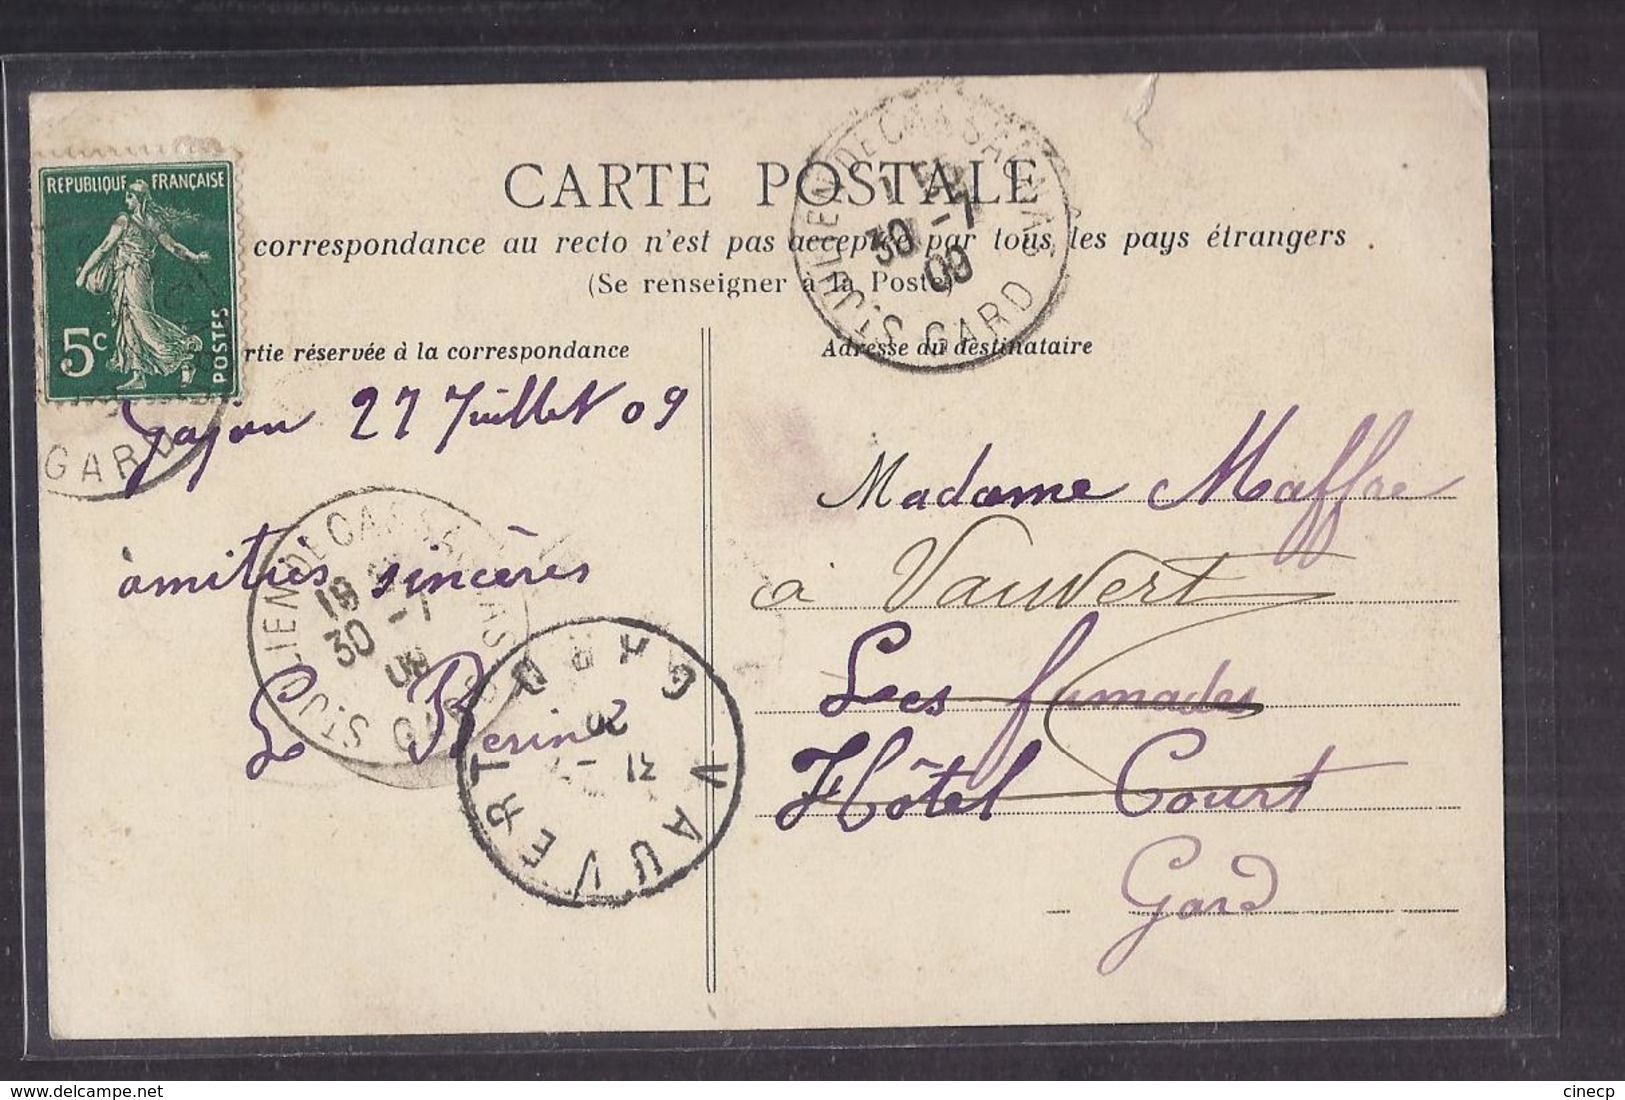 CARTE POSTALE
correspondance au recto n'est pas acceptée par tous les pays étrangers
(Se renseigner à la Poste)
REPUBLIQUE FRANÇAISE
5c
POSTES
rtie réservée à la correspondance
Adresse du destinataire
ST JULIEN DE CASSAGNAS
30 -7
09
GARD
GARD
Gajan 27 Juillet 09
amitiés sincères
ST JULIEN DE CASSAGNAS
19
30 -7
09
GARD
VAUVERT
GARD
31
L. Berin
Madame Maffre
à Vauvert
Les fumades
Hôtel Court
Gard
cinecp